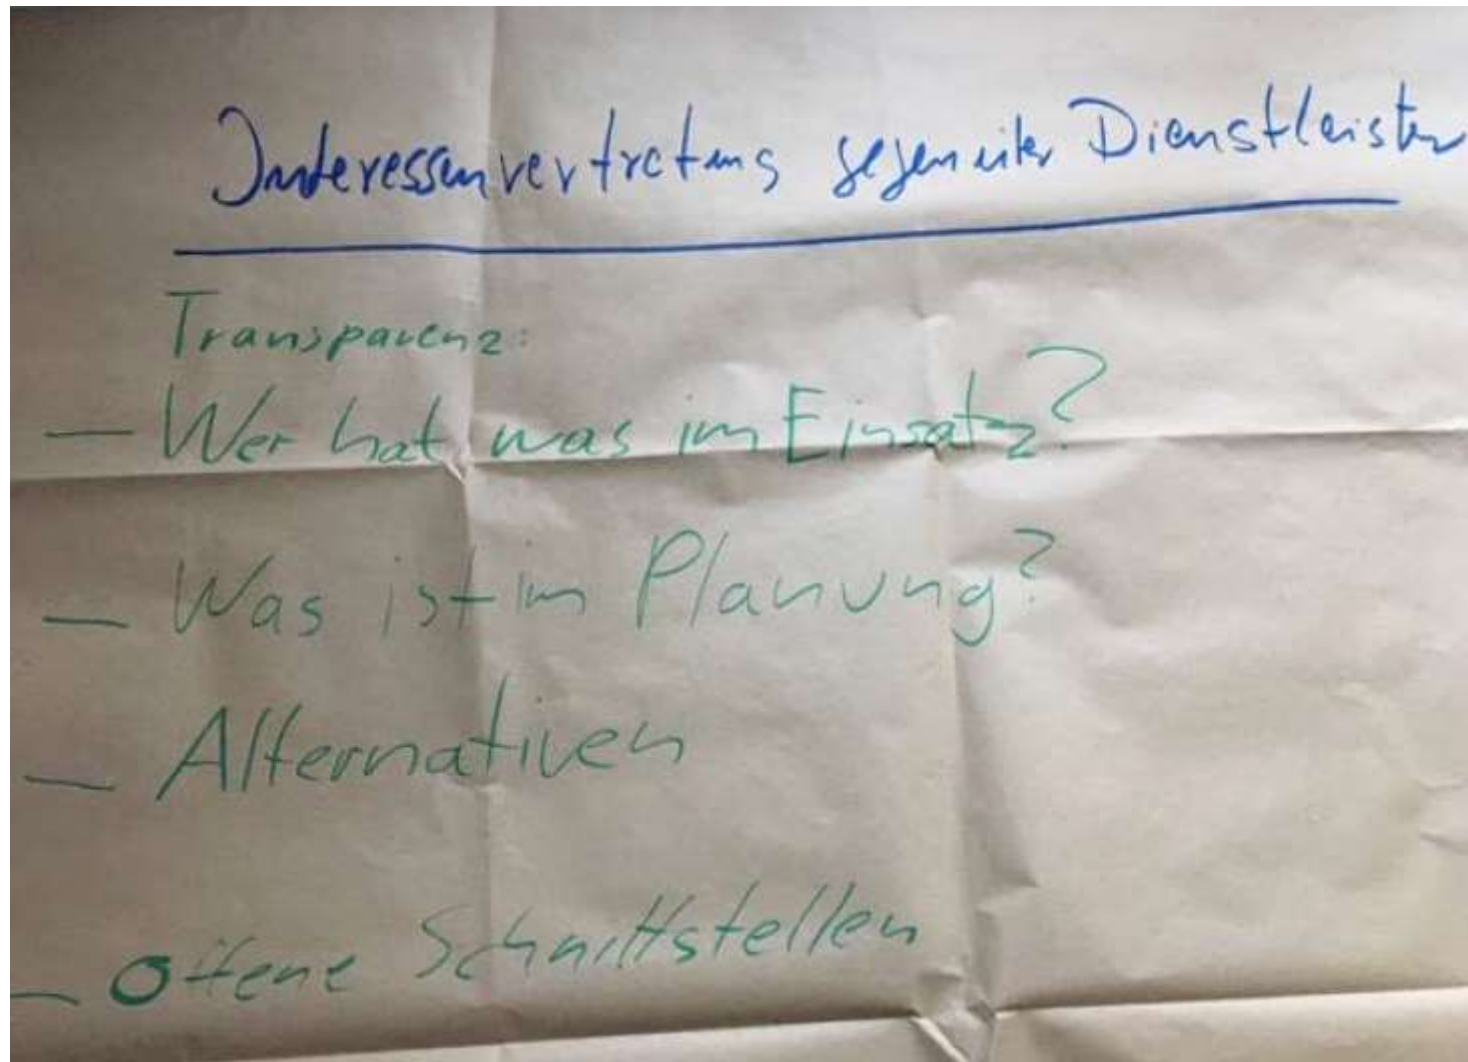 Interessenvertretung gegenüber Dienstleister
Transparenz:
— Wer hat was im Einsatz?
— Was ist im Planung?
— Alternativen
— Offene Schnittstellen